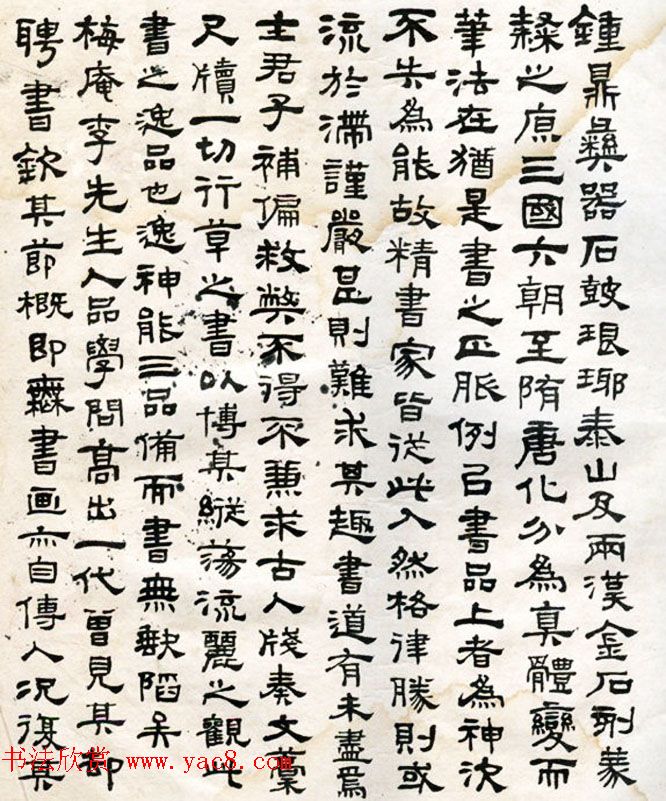 鍾鼎彝器石鼓琅琊泰山及兩漢金石刻篆
隸之原三國六朝至隋唐化分為真體變而
筆法在猶是書之正脈例召書品上者為神次
不失為能故精書家皆從此入然格律勝則或
流於滯謹嚴甚則難求其趣書道有未盡焉
士君子補偏救獘不得不兼求古人牋奏文藁
尺牘一切行草之書以博其縱蕩流麗之觀此
書之逸品也逸神能三品備而書無缺陷矣
梅庵李先生人品學問高出一代曾見其卻
聘書欽其節概即無書画亦自傳人況復其
书法欣赏 www.yac8.com